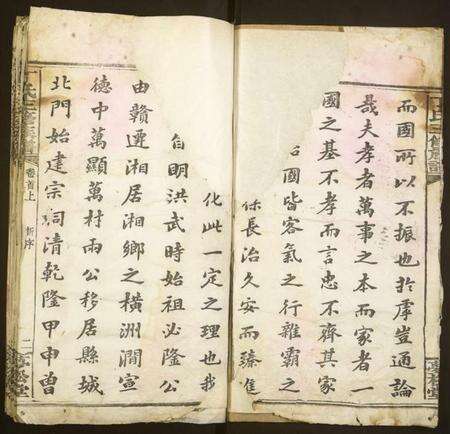 而國所以不振也於虖豈通論
哉夫孝者萬事之本而家者一
國之基不孝而言忠不齊其家
國皆客氣之行雜霸之
長治久安而臻進
化此一定之理也我
自明洪武時始祖必隆公
由贛遷湘居湘鄉之橫洲澗宣
德中萬顯萬村兩公移居縣城
北門始建宗祠清乾隆甲申曾
卷首上
新序
二